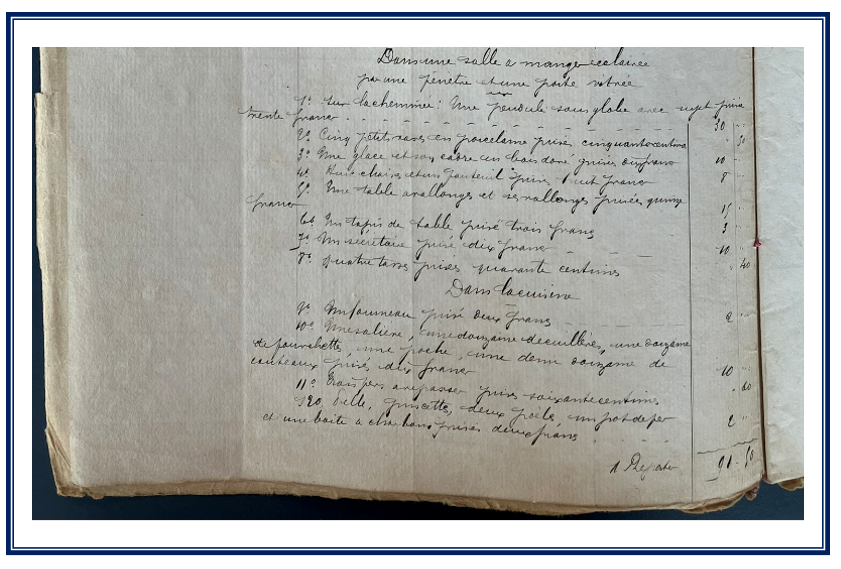 Dans une salle a manger eclairée
par une fenetre et une porte vitrée
1º Sur la cheminée : Une pendule sous globe avec sujet prisée
trente francs 30 "
2º Cinq petits vases en porcelaine prisés cinquante centimes " 50
3º Une glace et son cadre en bois doré prisés dix francs 10 "
4º chaises et un fauteuil prisés huit francs 8 "
5º Une table a rallonges et ses rallonges prisées quinze
francs 15 "
6º Un tapis de table prisé trois francs 3 "
7º Un secrétaire prisé dix francs 10 "
8º quatre tasses prisées quarante centimes " 40
Dans la cuisine
9º Un fourneau prisé deux francs 2 "
10º Une salière, une douzaine de cuillères, une douzaine
de fourchettes, une poche, une demi douzaine de
couteaux prisés dix francs 10 "
11º Trois fers a repasser prisés soixante centimes " 60
12º Pelle, pincettes, deux poêles, un pot de fer
et une boite a charbons prisés deux francs 2 "
A Reporter 91 - 50